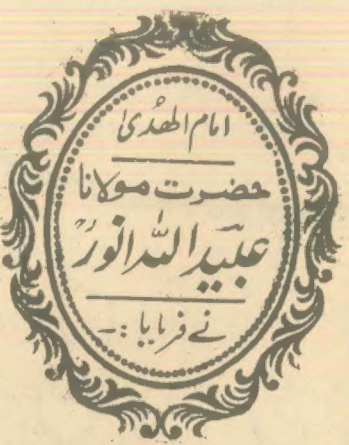 امام الھدیٰ
حضرت مولانا
عبید اللہ انورؒ
نے فرمایا :۔